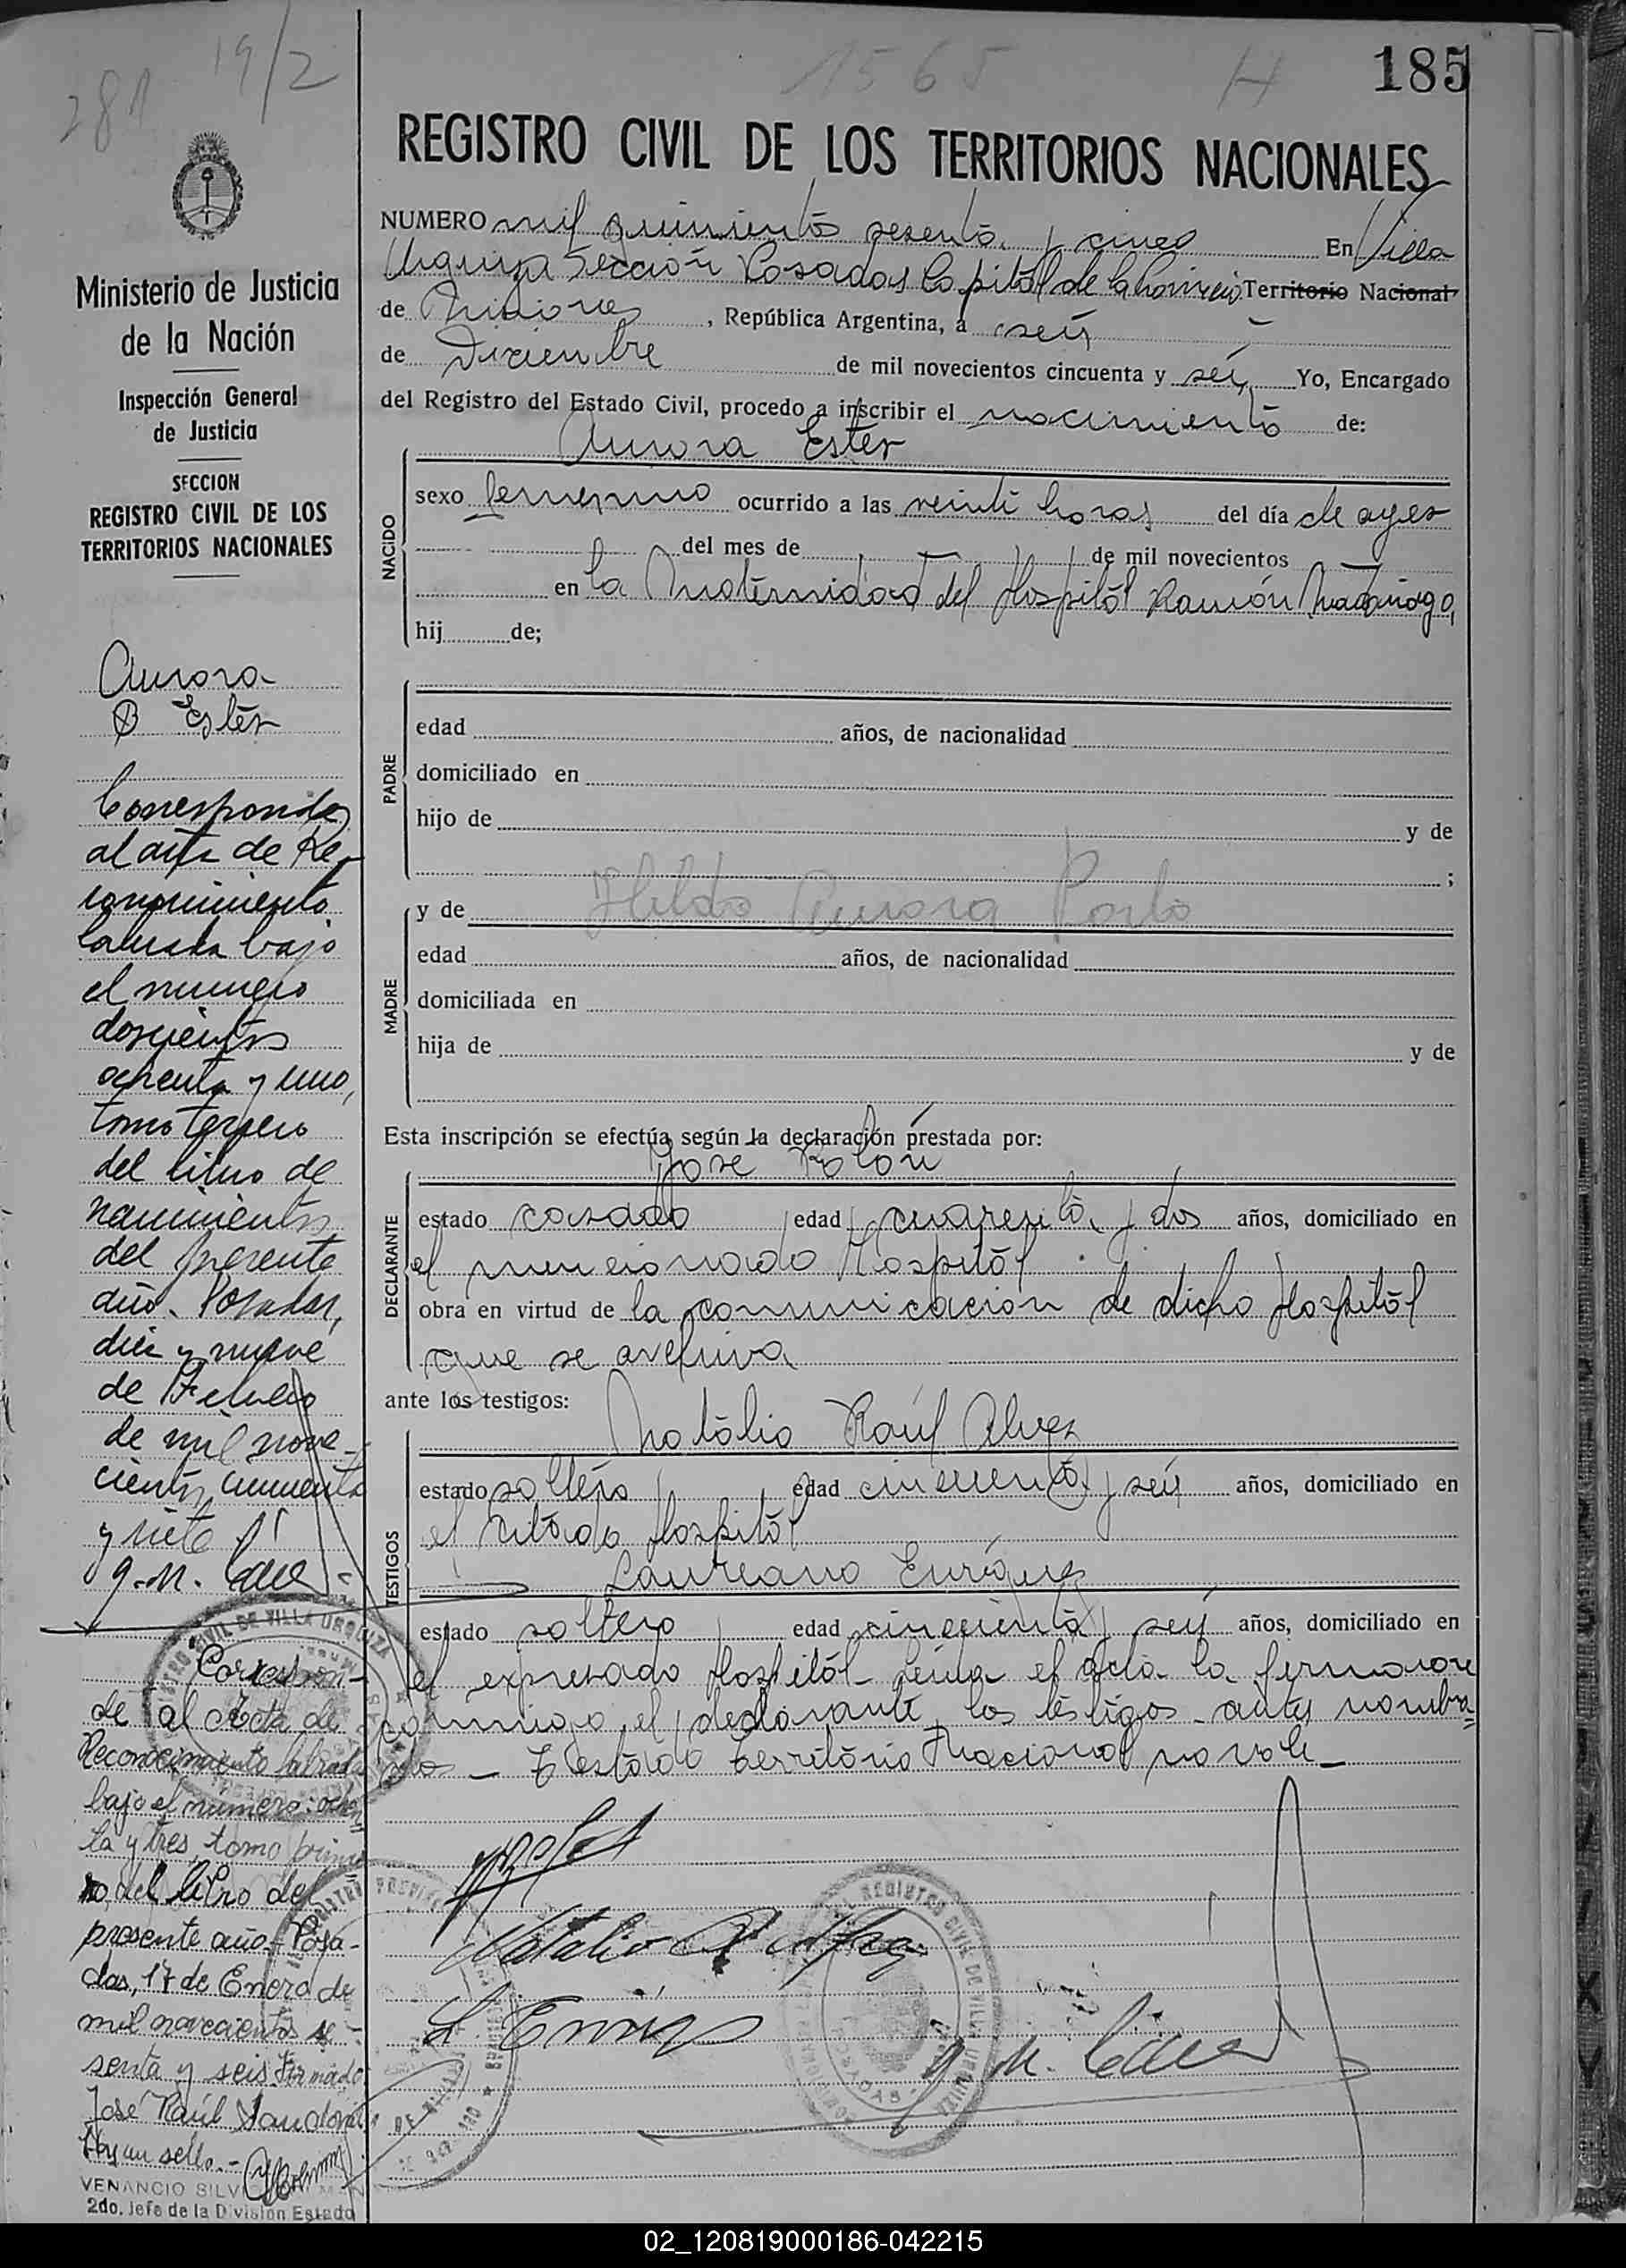 281 19/2 1565 H 185
REGISTRO CIVIL DE LOS TERRITORIOS NACIONALES
NUMERO mil quinientos sesenta y cinco En Villa
Urquiza Sección Posadas Capital de la Provincia Territorio Nacional
de Misiones, República Argentina, a seis
de Diciembre de mil novecientos cincuenta y seis Yo, Encargado
del Registro del Estado Civil, procedo a inscribir el nacimiento de:
Aurora Ester
NACIDO
sexo femenino ocurrido a las veinte horas del día de ayer
del mes de de mil novecientos
en la Maternidad del Hospital Ramón Madariaga,
hij de;
PADRE
edad años, de nacionalidad
domiciliado en
hijo de y de
;
MADRE
y de Hilda Aurora
edad años, de nacionalidad
domiciliada en
hija de y de
Esta inscripción se efectúa según la declaración prestada por:
Jose Rolón
DECLARANTE
estado casado edad cuarenta y dos años, domiciliado en
el mencionado Hospital
obra en virtud de la comunicación de dicho Hospital
que se archiva
ante los testigos:
Natalio Raúl Alvez
TESTIGOS
estado soltero edad cincuenta y seis años, domiciliado en
el citado Hospital
Laureano Enríquez
estado soltero edad cincuenta y seis años, domiciliado en
el expresado Hospital Leída el acta la firmaron
conmigo el declarante y los testigos antes nombra=
dos — Testado Territorio Nacional no vale —
Ministerio de Justicia
de la Nación
Inspección General
de Justicia
SECCION
REGISTRO CIVIL DE LOS
TERRITORIOS NACIONALES
Aurora
Ester
Corresponde
al acta de Re-
conocimiento
labrada bajo
el numero
doscientos
ochenta y uno,
tomo tercero
del libro de
nacimientos
del presente
año. Posadas,
diez y nueve
de Febrero
de mil nove-
cientos cincuenta
y siete
Correspon-
de al Acta de
Reconocimiento labrada
bajo el número: ochen
ta y tres, tomo prime
ro, del libro del
presente año. Posa-
das, 17 de Enero de
mil novecientos se-
senta y seis. Firmado
José Raúl Sandoval
Hay un sello.-
VENANCIO SILV
2do. Jefe de la División Estado
02_120819000186-042215